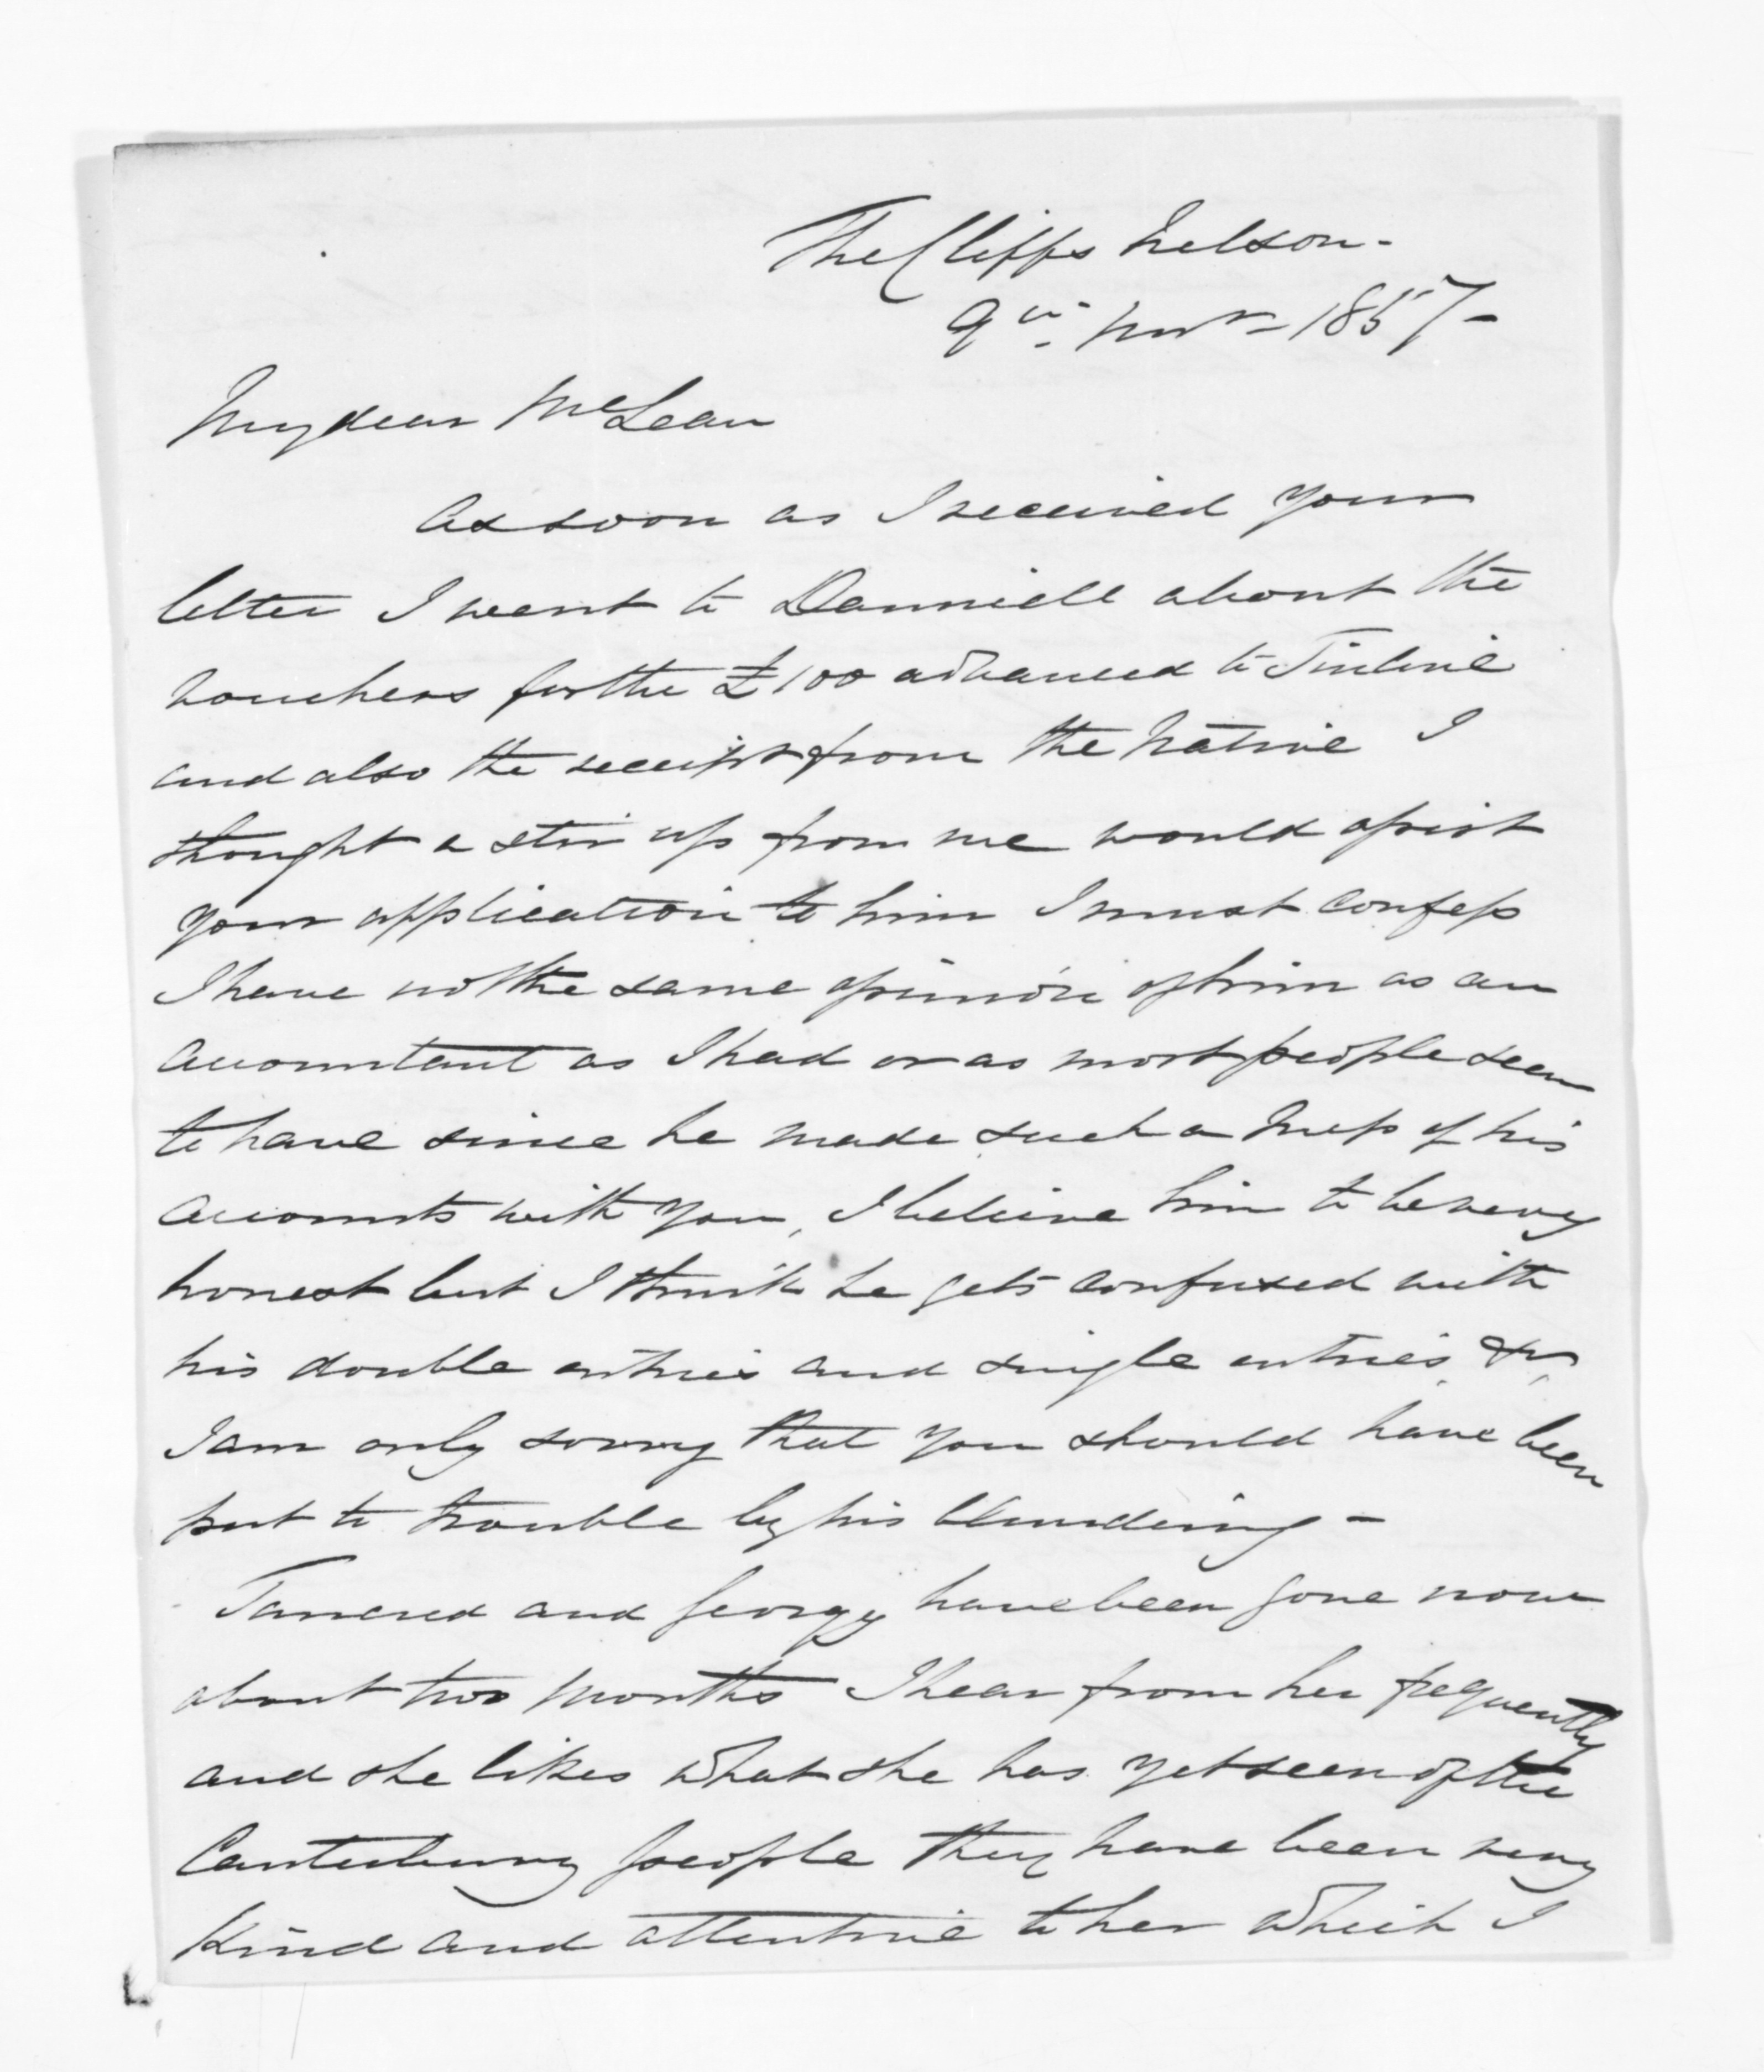 The Cliffs Nelson -
9th Novr 1857 -
My dear McLean
As soon as I received your
letter I went to Danniell about the
vouchers for the £100 advanced to Tinline
and also the receipt from the Native I
thought a stir up from me would assist
your application to him I must confess
I have not the same opinion of him as an
accountant as I had or as most people seem
to have since he made such a mess of his
accounts with you, I believe him to be very
honest but I think he gets confused with
his double entries and single entries, &c,
I am only sorry that you should have been
put to trouble by his blundering -
Tancred and Georgy have been gone now
about two months I hear from her frequently
and she likes what she has yet seen of the
Canterbury people they have been very
kind and attentive to her which I